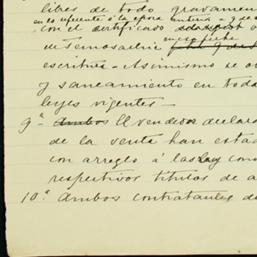 libre de todo gravamen
con el certificado
de Hermosachic
escritura - Asimismo se o
y saneamiento en todo
leyes vigentes -
9ª Ambos El vendedor declara
de la venta han estad
con arreglo á las ley com
respectivos títulos de a
10ª Ambos contratantes d